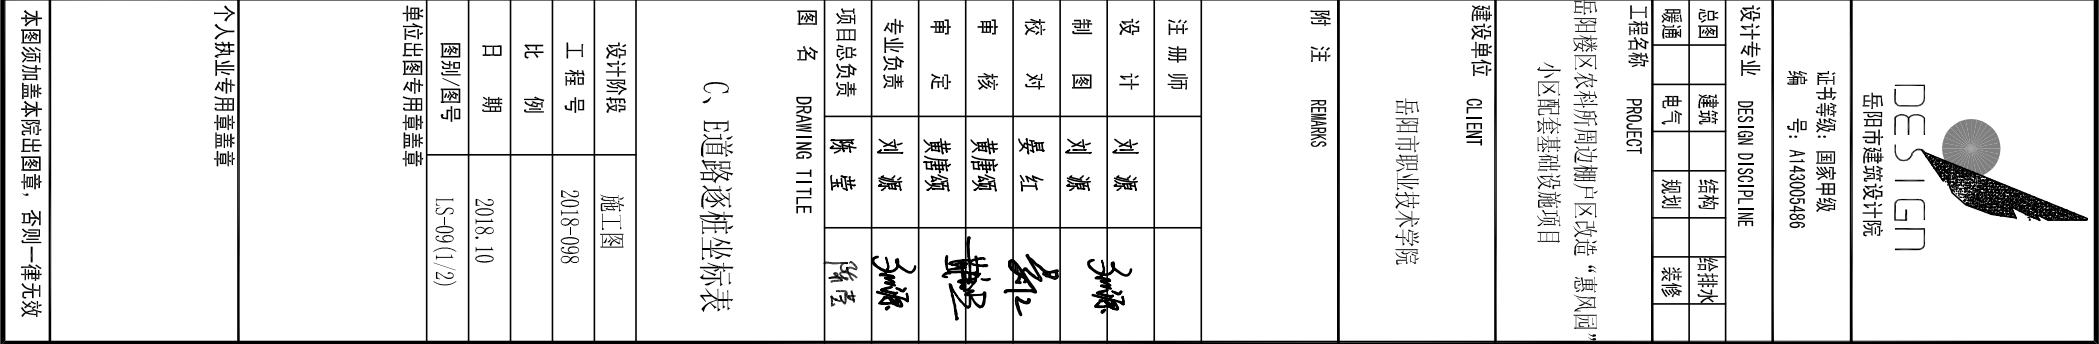 DESIGN
岳阳市建筑设计院
证书等级: 国家甲级
编 号: A143005486
设计专业 DESIGN DISCIPLINE
总图 建筑 结构 给排水
暖通 电气 规划 装修
工程名称 PROJECT
岳阳楼区农科所周边棚户区改造“惠风园”
小区配套基础设施项目
建设单位 CLIENT
岳阳市职业技术学院
附 注 REMARKS
注 册 师
设 计 刘 源
制 图 刘 源
校 对 晏 红
审 核 黄唐颂
审 定 黄唐颂
专业负责 刘 源
项目总负责 陈 莹
图 名 DRAWING TITLE
C、E道路逐桩坐标表
设计阶段 施工图
工 程 号 2018-098
比 例
日 期 2018.10
图别/图号 LS-09(1/2)
单位出图专用章盖章
个人执业专用章盖章
本图须加盖本院出图章, 否则一律无效